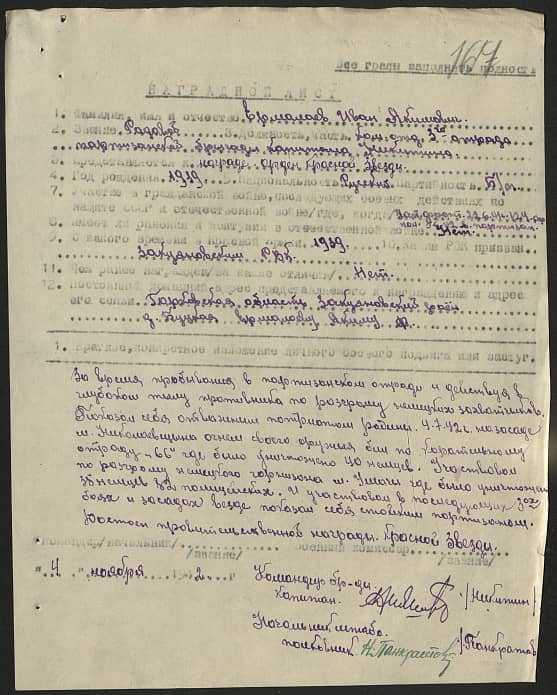 167
Все графы заполнять полность
НАГРАДНОЙ ЛИСТ
1. Фамилия, имя и отчество Ермолаев Иван Якимович
2. Звание Рядовой 3. должность, часть Ком. отд. 3го отряда
партизанской бригады капитана Никитина
3. Представляется к награде орден Красной Звезды
4. Год рождения 1919 5. Национальность Русский партийность Б/п
7. Участие в гражданской войне, последующих боевых действиях по
защите СССР и отечественной войне /где, когда/ Запфронт 22.6.41
8. имеет ли ранения и контузии в отечественной войне Нет
9. С какого времени в Красной армии 1939 10. Каким РВК призван
РВК
11. Чем ранее награжден /за какие отличия/ Нет
12. Постоянный домашний адрес представляемого к награждению и адрес
его семьи области район
д. Ермолаеву Якиму
1. Краткое, конкретное изложение личного боевого подвига или заслуг.
За время пребывания в партизанском отряде и действуя в
глубоком тылу противника по разгрому немецких захватчиков.
Показал себя отважным патриотом родины. 4.7.42 г. на засаде
м. Николаевщина огнем своего оружия бил по карательному
отряду "66" где было уничтожено 40 немцев. Участвовал
по разгрому немецкого гарнизона м. где было уничтожено
38 немцев полицейских. И участвовал в последующих 3ех
боях и засадах везде показал себя стойким партизаном.
Достоин правительственной награды Красной Звезды.
Командир /начальник/ военный комиссар
/звание/ /звание/
" 4 " ноября 1942 г
Командир бр-ды
капитан /Никитин/
Начальник штаба
полковник Н. Панкратов /Панкратов